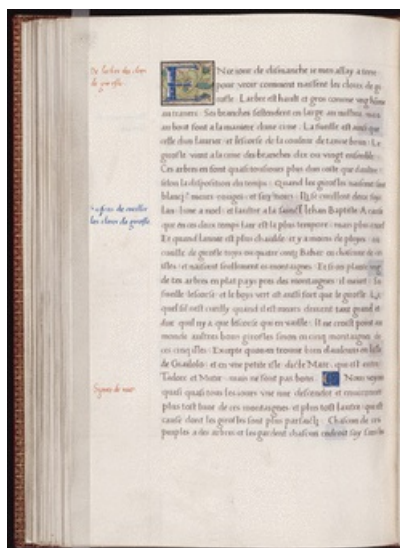 De larbre des clous de girofle.
Ce iour de dismanche ie men allay a terre
pour veoir comment naissent les cloux de gi
rofle. Larbre est hault et gros comme vng homme
au trauers. Ses branches sestendent en large au millieu mais
au bout sont a la maniere dune cime. La fueille est ainsi que
celle dun laurier et lescorce de la couleur de tanne brun. Le
girofle vient a la cime des branches dix ou vingt ensemble
Ces arbres en sont quasi tousiours plus dun coste que dautre
selon la disposition du temps. Quand les girofles naissent sont
blancz meurs rouges et secz noirs. Ilz se cueillent deux foys
lan lune a noel et lautre a la sainct Iehan Baptiste A cause
que en ces deux temps lair est la plus tempere mais plus a noel
Et quand lannee est plus chaulde et y a moins de pluyes
cueille de girofle troys ou quatre centz Bahar en chascune de ces
isles et naissent seullement es montaignes. Et si on plante
de ces arbres en plat pays pres des montaignes il meurt la
fueille lescorce et le boys vert est aussi fort que le girofle
que sil nest cueilly quand il est meurs deuient tant grand et
dur quil ny a que lescorce que en vaille. Il ne croist point au
monde aultres bons girofles sinon en cinq montaignes de
ces cinq isles. Excepte quon en trouue bien daulcuns en lisle
de Giailolo et en vne petite isle dicte Mare que est entre
Tadore et Mutir mais ne sont pas bons. Nous voyons
quasi quasi tous les iours vne nue descendre et enuironner
plus tost lune de ces montaignes et plus tost lautre que est
cause dont les girofles sont plus parfaictz. Chascun de ces
peuples a des arbres et les gardent chascun endroit soy
Saison de cueillir les cloux de girofle.